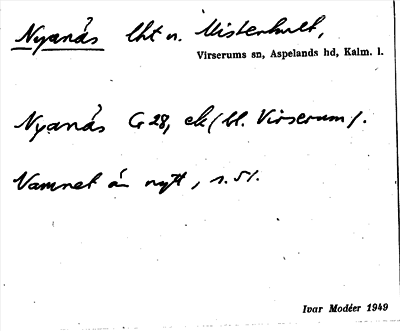 Nyanäs lht u. Misterhult,
Virserums sn, Aspelands hd, Kalm. l.
Nyanäs G 28, ek (bl. Virserum).
Namnet är nytt, s. 51.
Ivar Modéer 1949